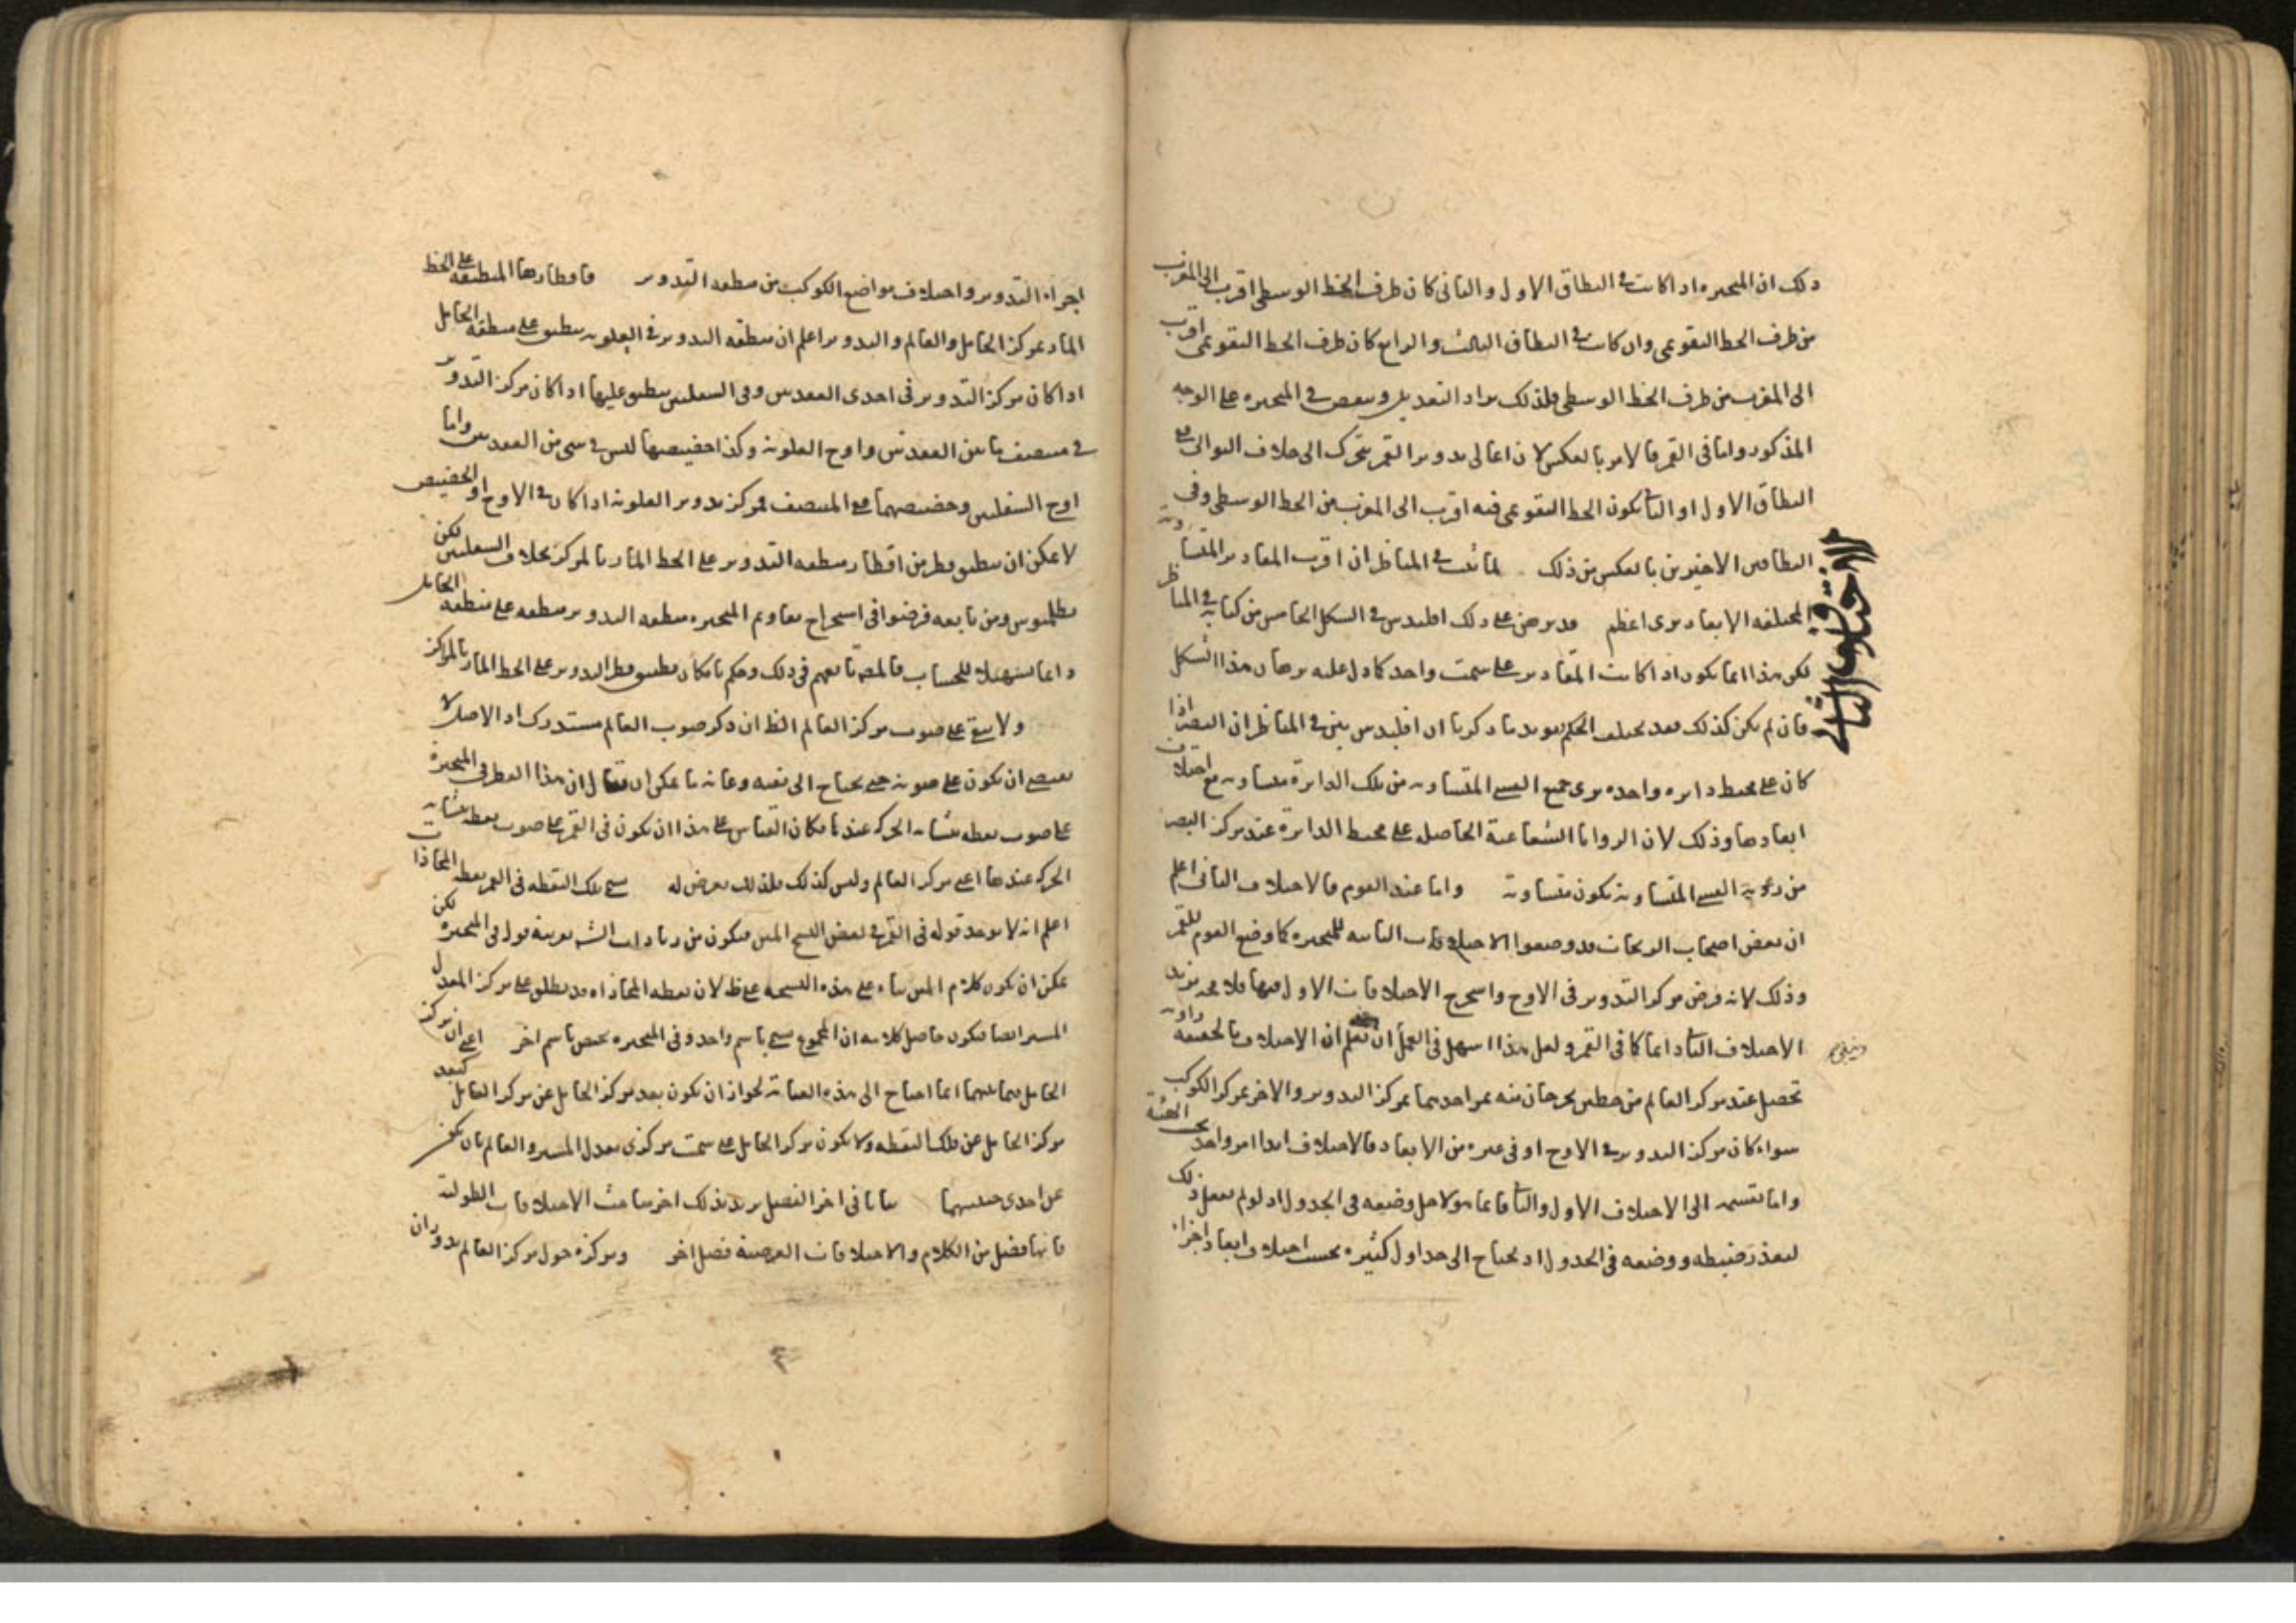 ذلك ان المتحيره اذا كانت في النطاق الاول والثانى كان طرف الخط الوسطى اقرب الى المغرب
من طرف الخط التقويمى وان كانت في النطاق الثالث والرابع كان طرف الخط التقويمى اقرب
الى المغرب من طرف الخط الوسطى فلذلك يزاد التعديل وينقص في المتحيره على الوجه
المذكور واما فى القمر فالامر بالعكس لان اعالى تدوير القمر يتحرك الى خلاف التوالى ففى
النطاق الاول او الثانى يكون الخط التقويمى فيه اقرب الى المغرب من الخط الوسطى وفى
النطاقين الاخيرين بالعكس من ذلك لما ثبت في المناظر ان اقرب المقادير المتساوية
المختلفه الابعاد يرى اعظم قد برهن على ذلك اقليدس في الشكل الخامس من كتابه في المناظر
لكن هذا انما يكون اذا كانت المقادير على سمت واحد كما دل عليه برهان هذا الشكل
فان لم يكن كذلك فقد يختلف الحكم يويد ما ذكرنا ان اقليدس بين في المناظر ان البصر اذا
كان على محيط دايره واحده يرى جميع القسى المتساويه من تلك الدايرة متساويه مع اختلاف
ابعادها وذلك لان الزوايا الشعاعية الحاصل على محيط الدايرة عند مركز البصر
من رؤية القسى المتساوية تكون متساوية واما عند القوم فالاختلاف الثانى اعلم
ان بعض اصحاب الزيجات قد وضعوا الاختلافات الثانيه للمتحيره كما وضع القوم للقمر
وذلك لانه فرض مركز التدوير فى الاوج واستخرج الاختلافات الاول فيها فلا محه يزيد
الاختلاف الثانى دايما كما فى القمر ولعل هذا اسهل فى العمل ان تعلم ان الاختلاف بالحقيقه زاوية
تحصل عند مركز العالم من خطين يخرجان منه يمر احدهما بمركز التدوير والاخر بمركز الكوكب
سواء كان مركز التدوير في الاوج او فى غيره من الابعاد فالاختلاف ابدا امر واحد بحسب الحقيقة
واما تقسيمه الى الاختلاف الاول والثانى فانما هو لاجل وضعه فى الجدول اذ لو لم يفعل ذلك
لتعذر ضبطه ووضعه فى الجدول اذ يحتاج الى جداول كثيره بحسب اختلاف ابعاد اجزاء
الاختلاف الثانى
اجزاء التدوير واختلاف مواضع الكوكب من منطقه التدوير فاقطارها المنطبقه على الخط
المار بمركز الحامل والعالم والتدوير اعلم ان منطقه التدوير في العلويه ينطبق على منطقه الحامل
اذا كان مركز التدوير فى احدى العقدتين وفى السفليين ينطبق عليها اذا كان مركز التدوير
في منتصف ما بين العقدتين واوج العلوية وكذا حضيضها ليس في شى من العقدتين واما
اوج السفليين وحضيضهما ففى المنتصف فمركز تدوير العلوية اذا كان في الاوج او الحضيض
لا يمكن ان ينطبق قطر من اقطار منطقه التدوير على الخط المار بالمركز بخلاف السفليين لكن
بطلميوس ومن تابعه فرضوا فى استخراج تقاويم المتحيره منطقه التدوير منطبقه على منطقه الحامل
دايما تسهيلا للحساب فالمصه تابعهم فى ذلك وحكم بامكان تطبيق قطر التدوير على الخط المار بالمراكز
ولا يبقى على صوب مركز العالم الظ ان ذكر صوب العالم مستدرك اذ الاصل لا
يقتضى ان يكون على صوبه حتى يحتاج الى نفيه وغاية ما يمكن ان يقال ان هذا القطر فى المتحيرة
على صوب نقطه تشابه الحركه عندها فكان القياس على هذا ان يكون فى القمر على صوب نقطه تشابه
الحركه عندها اعنى مركز العالم وليس كذلك فلذلك تعرض له تسمى تلك النقطه فى القمر نقطه المحاذات
اعلم انه لا يوجد قوله فى القمر في بعض النسخ المتن فيكون من زيادات الشه بقرينة قوله فى المتحيره لكن
يمكن ان يكون كلام المتن بناء على هذه النسخه على ظه لان نقطه المحاذاه قد يطلق على مركز المعدل
المسير ايضا فيكون حاصل كلامه ان المجموع تسمى باسم واحد وفى المتحيره يختص باسم اخر اعنى ان مركز
الحامل فيما بينهما انما احتاج الى هذه العناية لجواز ان يكون بعد مركز الحامل عن مركز العالم كبعد
مركز الحامل عن تلك النقطه ولا يكون مركز الحامل على سمت مركزى معدل المسير والعالم بان يكون
عن احدى جنبيهما بيانا فى اخر الفصل يريد بذلك اخر مباحث الاختلافات الطولية
فانها فصل من الكلام والاختلافات العرضية فصل اخر ومركزه حول مركز العالم بدوران